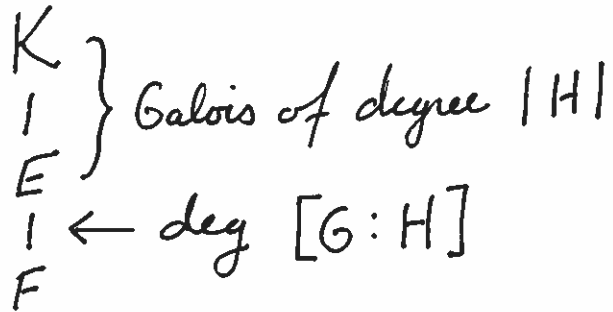 K
| } Galois of degree |H|
E
| ← deg [G:H]
F